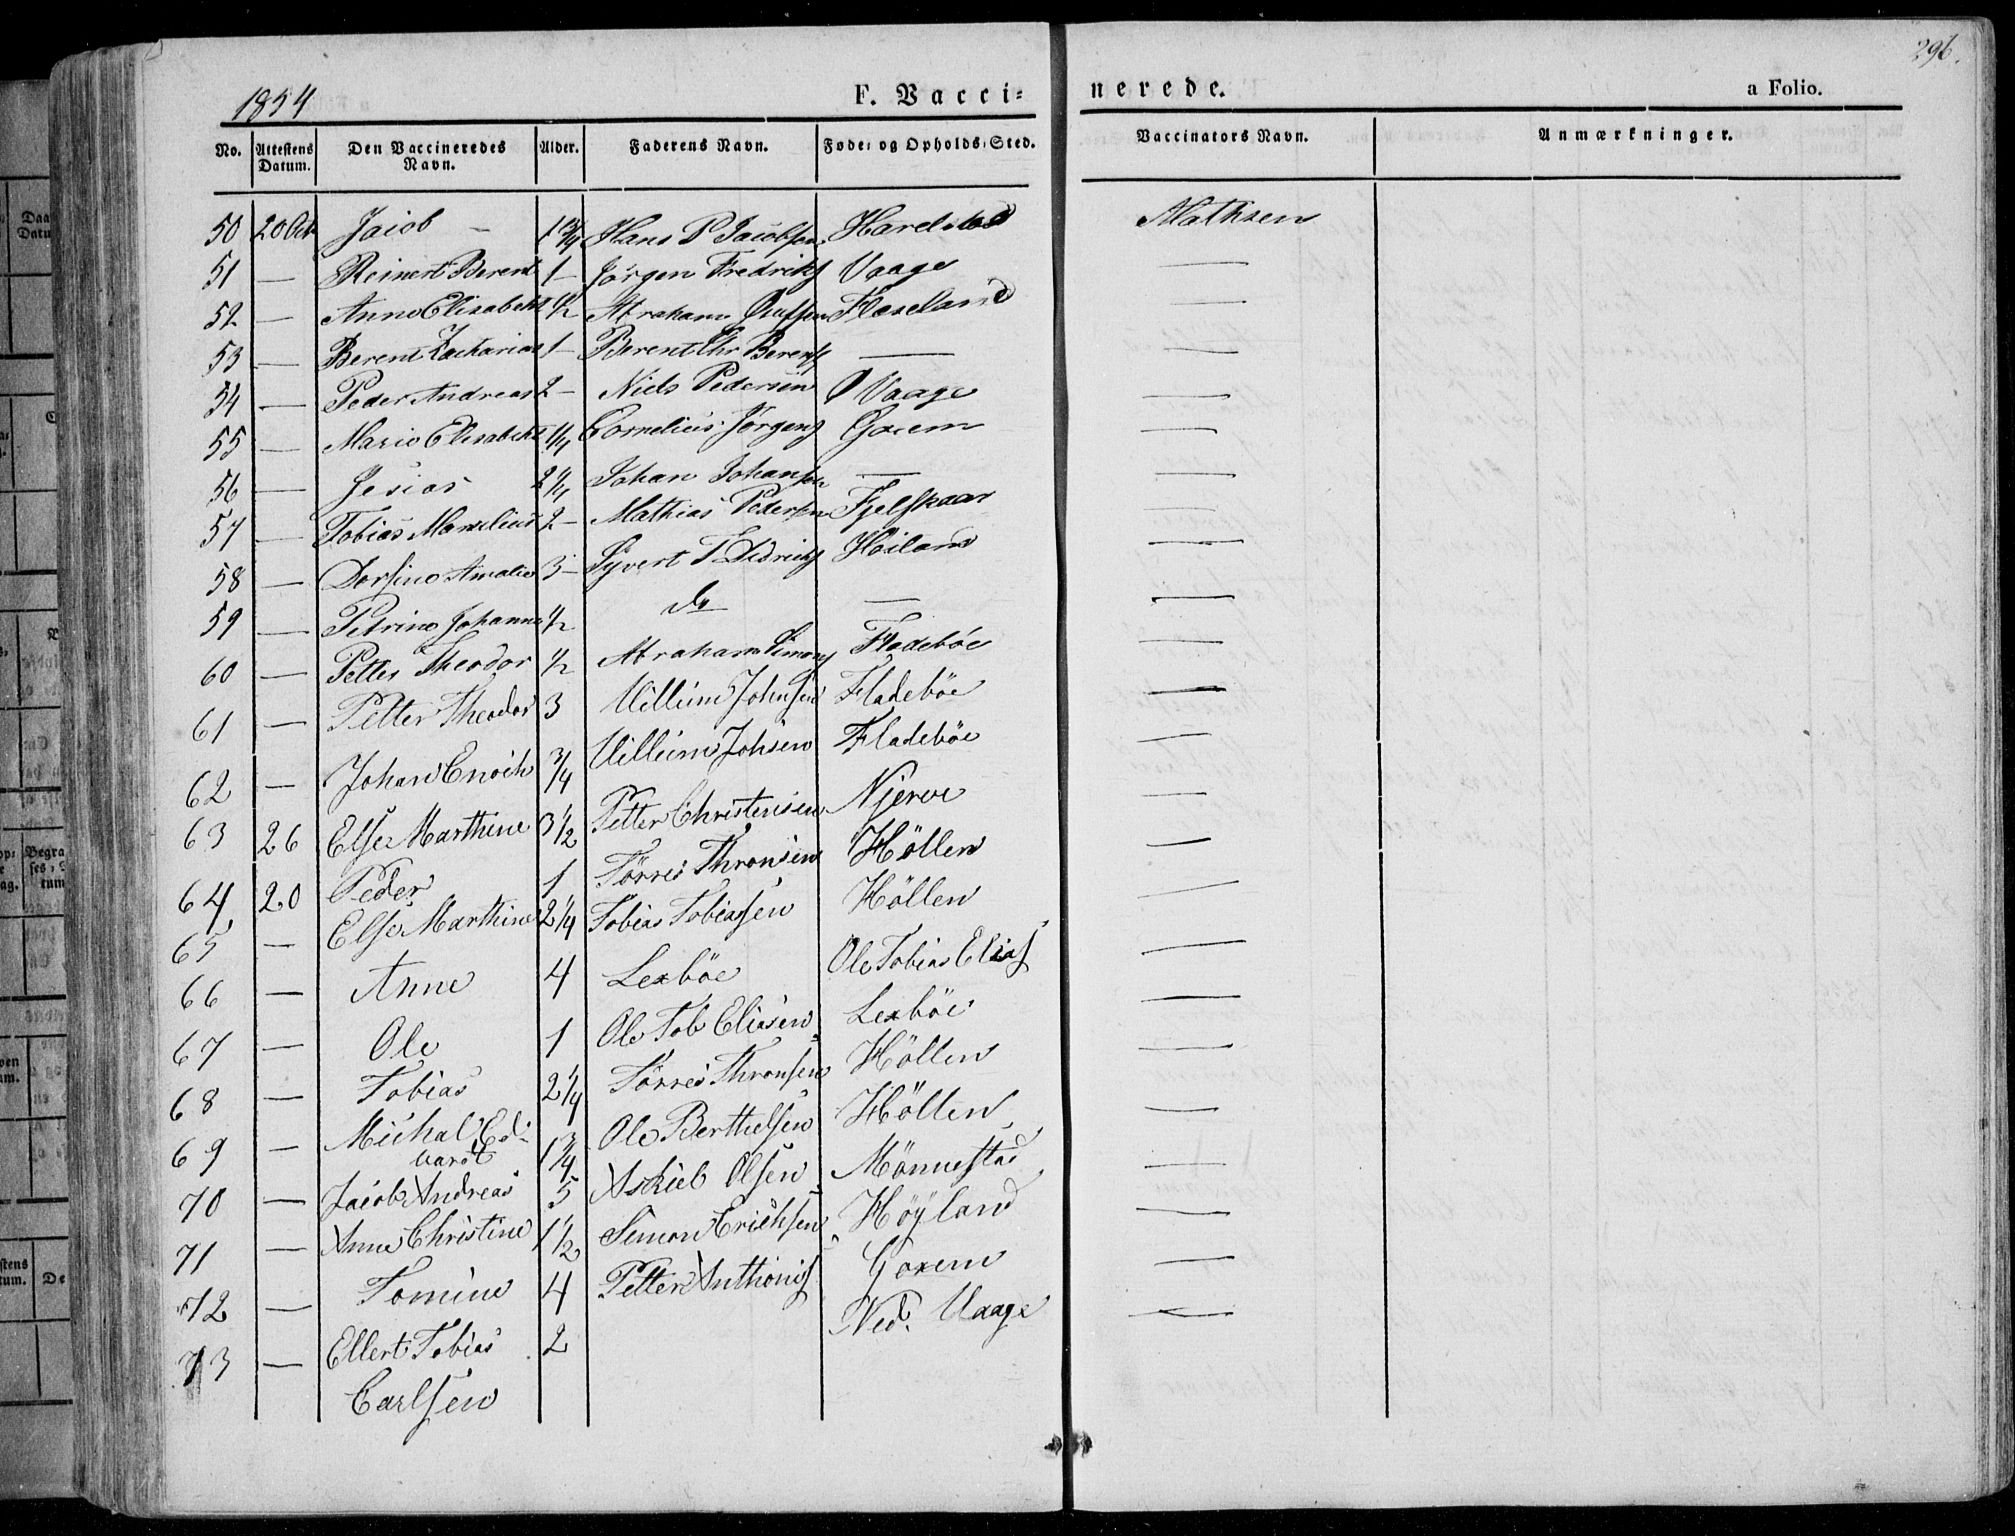 296.
1854 F. Vacci= nerede. a Folio.
No. Attestens Datum. Den Vaccineredes Navn. Alder. Faderens Navn. Føde= og Opholds=Sted. Vaccinators Navn. Anmærkninger.
50 20 Oct Jacob – 1 3/4 Hans P Jacobsen Harelstad Mathsen
51 — Reinert Berent 1 – Jörgen Fredriks Vaage —
52 — Anne Elisabeth 1/2 Abraham Fleseland —
53 — Berent Zacharias 1 – Berent Chr Berents — —
54 — Peder Andreas 2 – Niels Pedersen O Vaage —
55 — Marie Elisabeth 1/4 Cornelius Jörgens Goxem —
56 — Jesias 2 1/4 Johan Johansen — —
57 — Tobias Marselius 2 – Mathias Pedersen Fjelskaar —
58 — Dorsine Amalie 3 – Syvert T Didriks Höiland —
59 — Petrine Johanne 1/2 do — —
60 — Petter Theodor 1/2 Abraham Simons Fladeböe —
61 — Petter Theodor 3 Villum Johnsen Fladeböe —
62 — Johan Enoch 3/4 Villum Johsen Fladeböe —
63 26 Else Marthine 3 1/2 Petter Christensen Njerve —
64 20 Peder 1 Törres Thronsen Höllen —
65 — Else Marthine 2 1/4 Tobias Tobiassen Höllen —
66 — Anne 4 Lexböe Ole Tobias Elias —
67 — Ole 1 Ole Tob Eliasen Lexböe —
68 — Tobias 2 1/4 Törres Thronsen Höllen —
69 — Michal Ed= 1 3/4 Ole Berthelsen Höllen —
vardt
70 — Jacob Andreas 5 Askild Olsen Mönnestad —
71 — Anne Christine 1 1/2 Simon Erichsen Höyland —
72 — Tomine 4 Petter Anthonis Goxem —
73 — Ellert Tobias 2 Ned. Vaage —
Carlsen